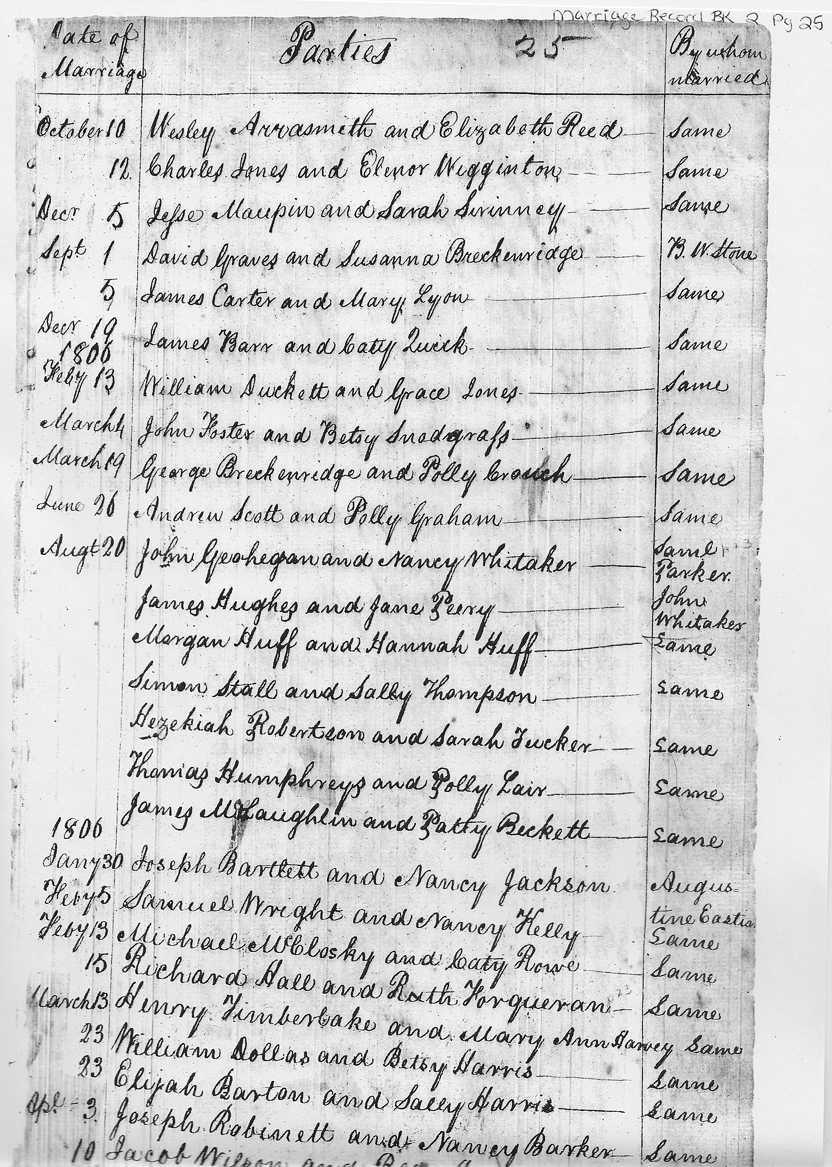 Marriage Record BK 2 Pg 25
Date of Marriage Parties 25 By whom married
October 10 Wesley Arrasmith and Elizabeth Reed Same
12 Charles Jones and Elenor Wigginton Same
Decr 5 Jesse Maupin and Sarah Swinney Same
Sept 1 David Graves and Susanna Breckenridge B. W. Stone
5 James Carter and Mary Lyon Same
Decr 19 James Barr and Caty Quick Same
1806
Feby 13 William Duckett and Grace Jones Same
March 4 John Foster and Betsy Snodgrass Same
March 19 George Breckenridge and Polly Crouch Same
June 26 Andrew Scott and Polly Graham Same
Augt 20 John Geohegan and Nancy Whitaker Saml Parker
James Hughes and Jane Peery John Whitaker
Morgan Huff and Hannah Huff Same
Simon Stall and Sally Thompson Same
Hezekiah Robertson and Sarah Tucker Same
Thomas Humphreys and Polly Lair Same
James McLaughlin and Patty Beckett Same
1806
Jany 30 Joseph Bartlett and Nancy Jackson Augustine Eastis
Feby 5 Samuel Wright and Nancy Kelly Same
Feby 13 Michael McClosky and Caty Rowe Same
15 Richard Hall and Ruth Forqueran Same
March 13 Henry Timberlake and Mary Ann Harvey Same
23 William Dollas and Betsy Harris Same
23 Elijah Barton and Salley Harris Same
Apl = 3 Joseph Robinett and Nancy Barker Same
10 Jacob Wilson and